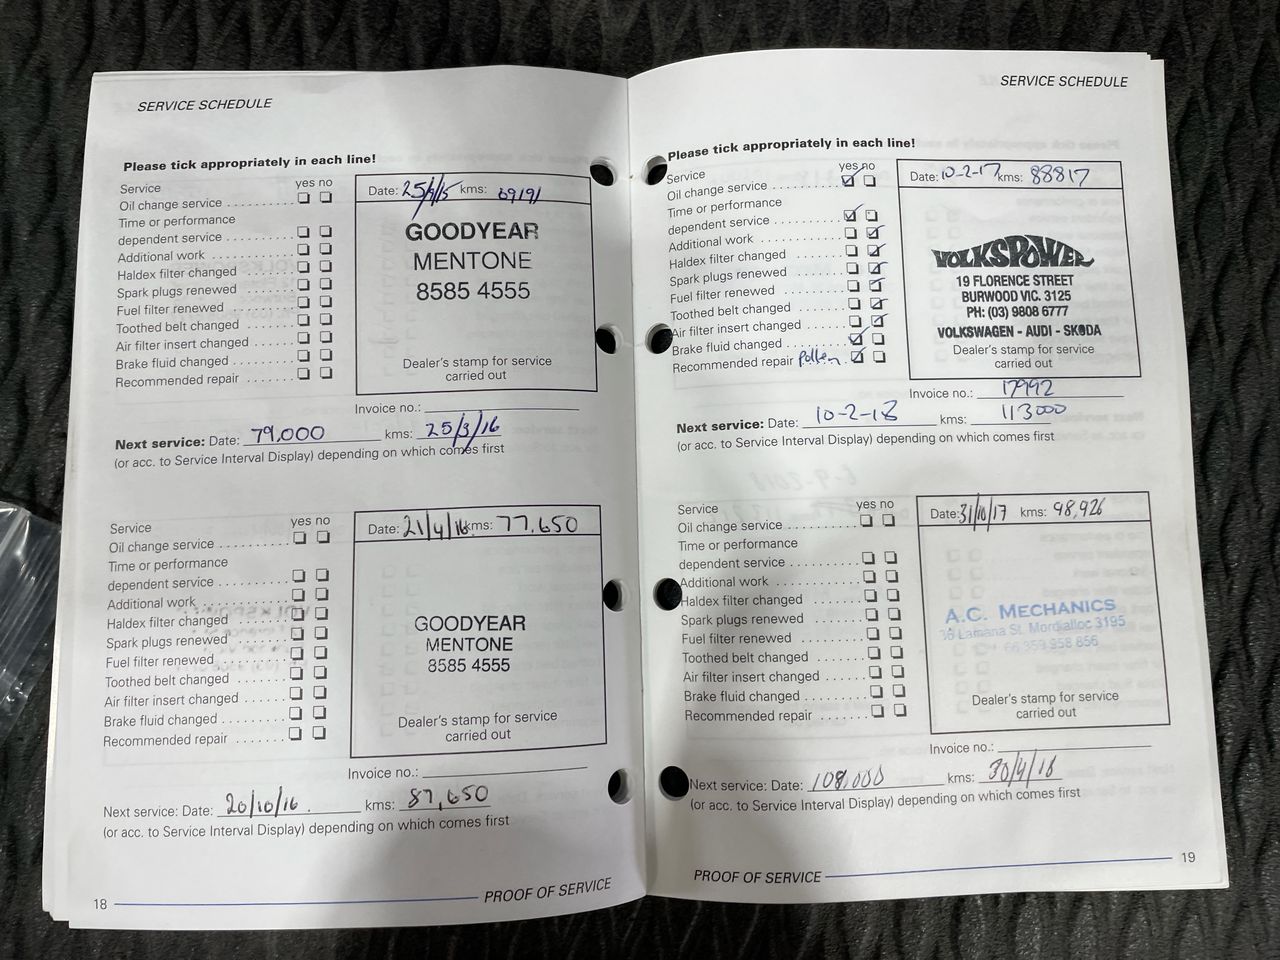 SERVICE SCHEDULE
Please tick appropriately in each line!
Service yes no
Oil change service ..........
Time or performance
dependent service ..........
Additional work ..........
Haldex filter changed
Spark plugs renewed
Fuel filter renewed
Toothed belt changed
Air filter insert changed
Brake fluid changed
Recommended repair .......
Date: 25/9/15 kms: 69191
GOODYEAR
MENTONE
8585 4555
Dealer's stamp for service
carried out
Invoice no.:
Next service: Date: 79,000 kms: 25/3/16
(or acc. to Service Interval Display) depending on which comes first
Service yes no
Oil change service ..........
Time or performance
dependent service ..........
Additional work ..........
Haldex filter changed
Spark plugs renewed
Fuel filter renewed
Toothed belt changed
Air filter insert changed
Brake fluid changed
Recommended repair .......
Date: 21/4/16 kms: 77,650
GOODYEAR
MENTONE
8585 4555
Dealer's stamp for service
carried out
Invoice no.:
Next service: Date: 20/10/16. kms: 87,650
(or acc. to Service Interval Display) depending on which comes first
18 PROOF OF SERVICE
SERVICE SCHEDULE
Please tick appropriately in each line!
Service yes no
Oil change service ..........
Time or performance
dependent service ..........
Additional work ..........
Haldex filter changed
Spark plugs renewed
Fuel filter renewed
Toothed belt changed
Air filter insert changed
Brake fluid changed
Recommended repair Pollen
Date: 10-2-17 kms: 88817
VOLKSPOWER
19 FLORENCE STREET
BURWOOD VIC. 3125
PH: (03) 9808 6777
VOLKSWAGEN - AUDI - SKODA
Dealer's stamp for service
carried out
Invoice no.: 17992
Next service: Date: 10-2-18 kms: 113000
(or acc. to Service Interval Display) depending on which comes first
Service yes no
Oil change service ..........
Time or performance
dependent service ..........
Additional work ..........
Haldex filter changed
Spark plugs renewed
Fuel filter renewed
Toothed belt changed
Air filter insert changed
Brake fluid changed
Recommended repair .......
Date: 31/10/17 kms: 98,926
A.C. MECHANICS
36 Lamana St. Mordialloc 3195
66 359 958 656
Dealer's stamp for service
carried out
Invoice no.:
Next service: Date: 108,000 kms: 30/4/18
(or acc. to Service Interval Display) depending on which comes first
PROOF OF SERVICE 19